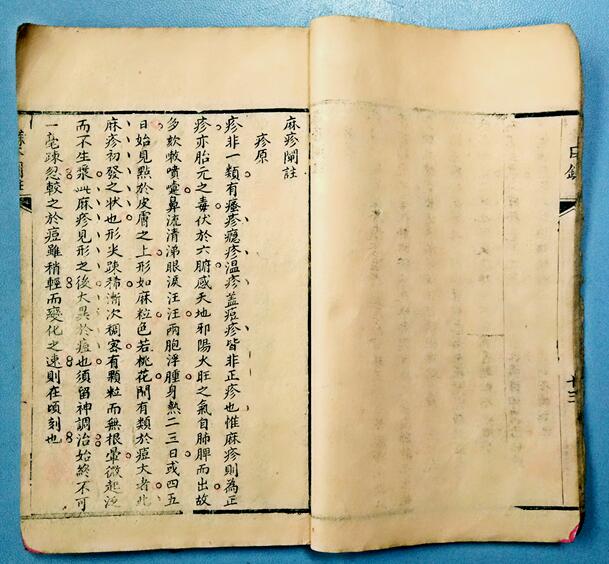 目錄
十三
麻疹闡註
疹原
疹非一類有瘙疹癮疹温疹蓋痘疹皆非正疹也惟麻疹則為正
疹亦胎元之毒伏於六腑感天地邪陽火旺之氣自肺脾而出故
多欬嗽噴嚏鼻流清涕眼淚汪汪兩胞浮腫身熱二三日或四五
日始見點於皮膚之上形如麻粒色若桃花間有類於痘大者此
麻疹初發之狀也形尖疎稀漸次稠密有顆粒而無根暈微起泛
而不生漿此麻疹見形之後大異於痘也須留神調治始終不可
一毫疎忽較之於痘雖稍輕而變化之速則在頃刻也